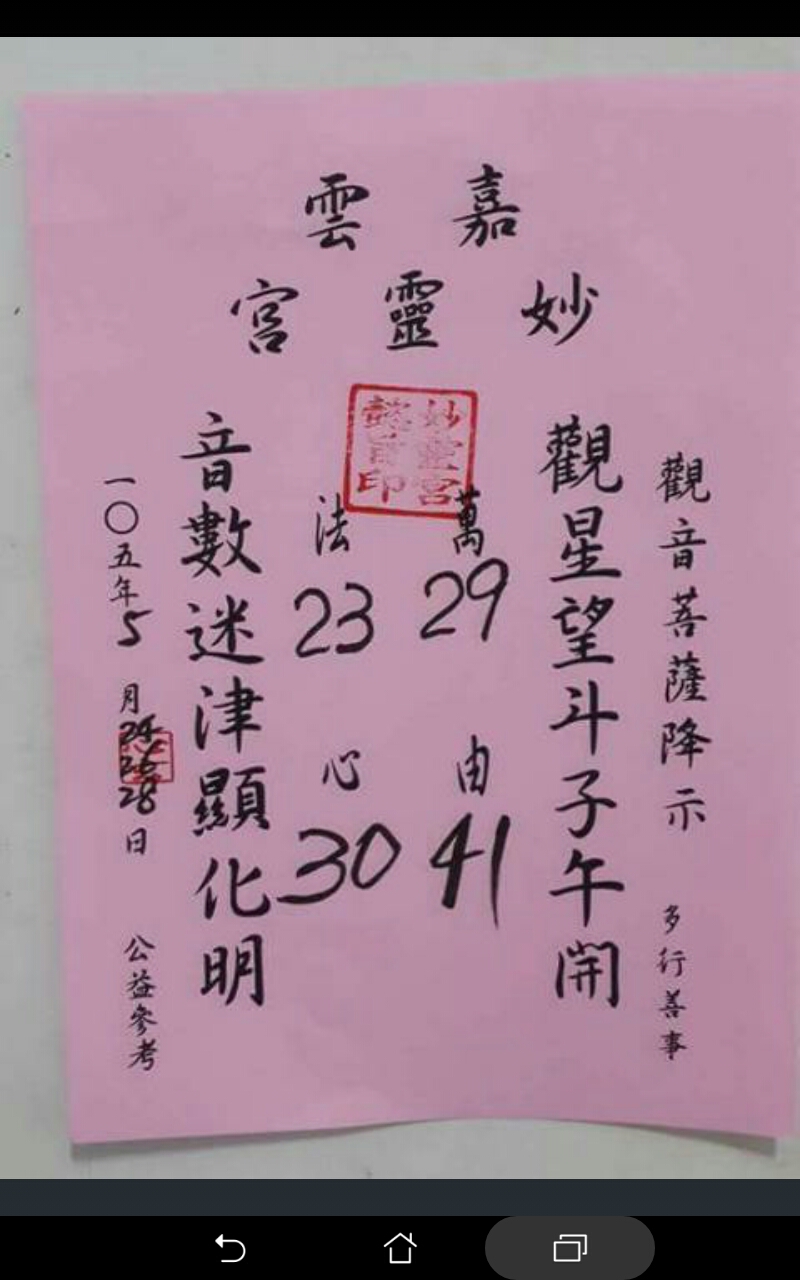 嘉雲
妙靈宮
觀音菩薩降示 多行善事
觀星望斗子午開
萬29 由41
法23 心30
音數迷津顯化明
一〇五年5月24 26 28日 公益參考
妙靈宮
印